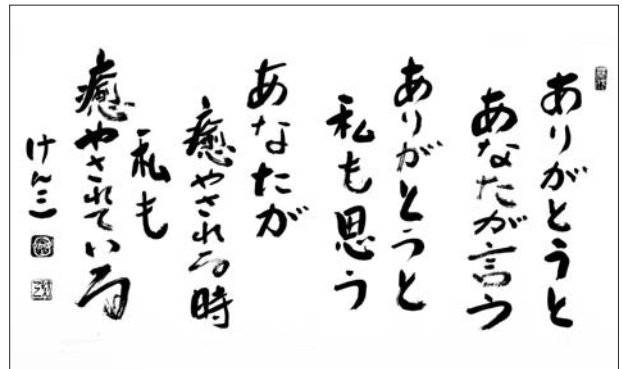 ありがとうと
あなたが言う
ありがとうと
私も思う
あなたが
癒やされる時
私も
癒やされている
けん三